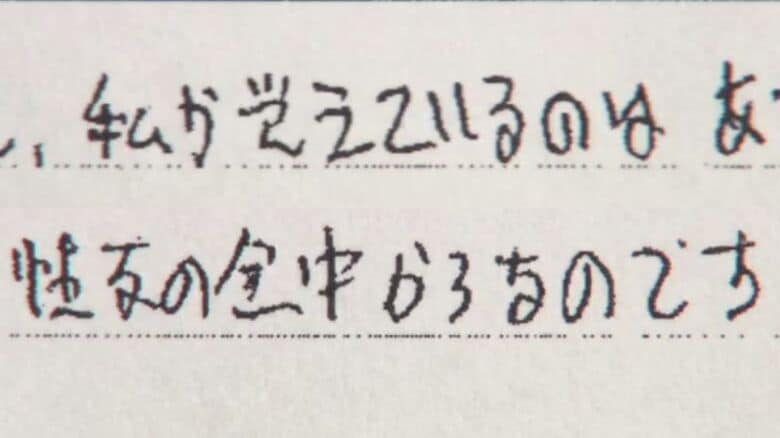 、私が覚えているのは あ
性友の途中からなのです